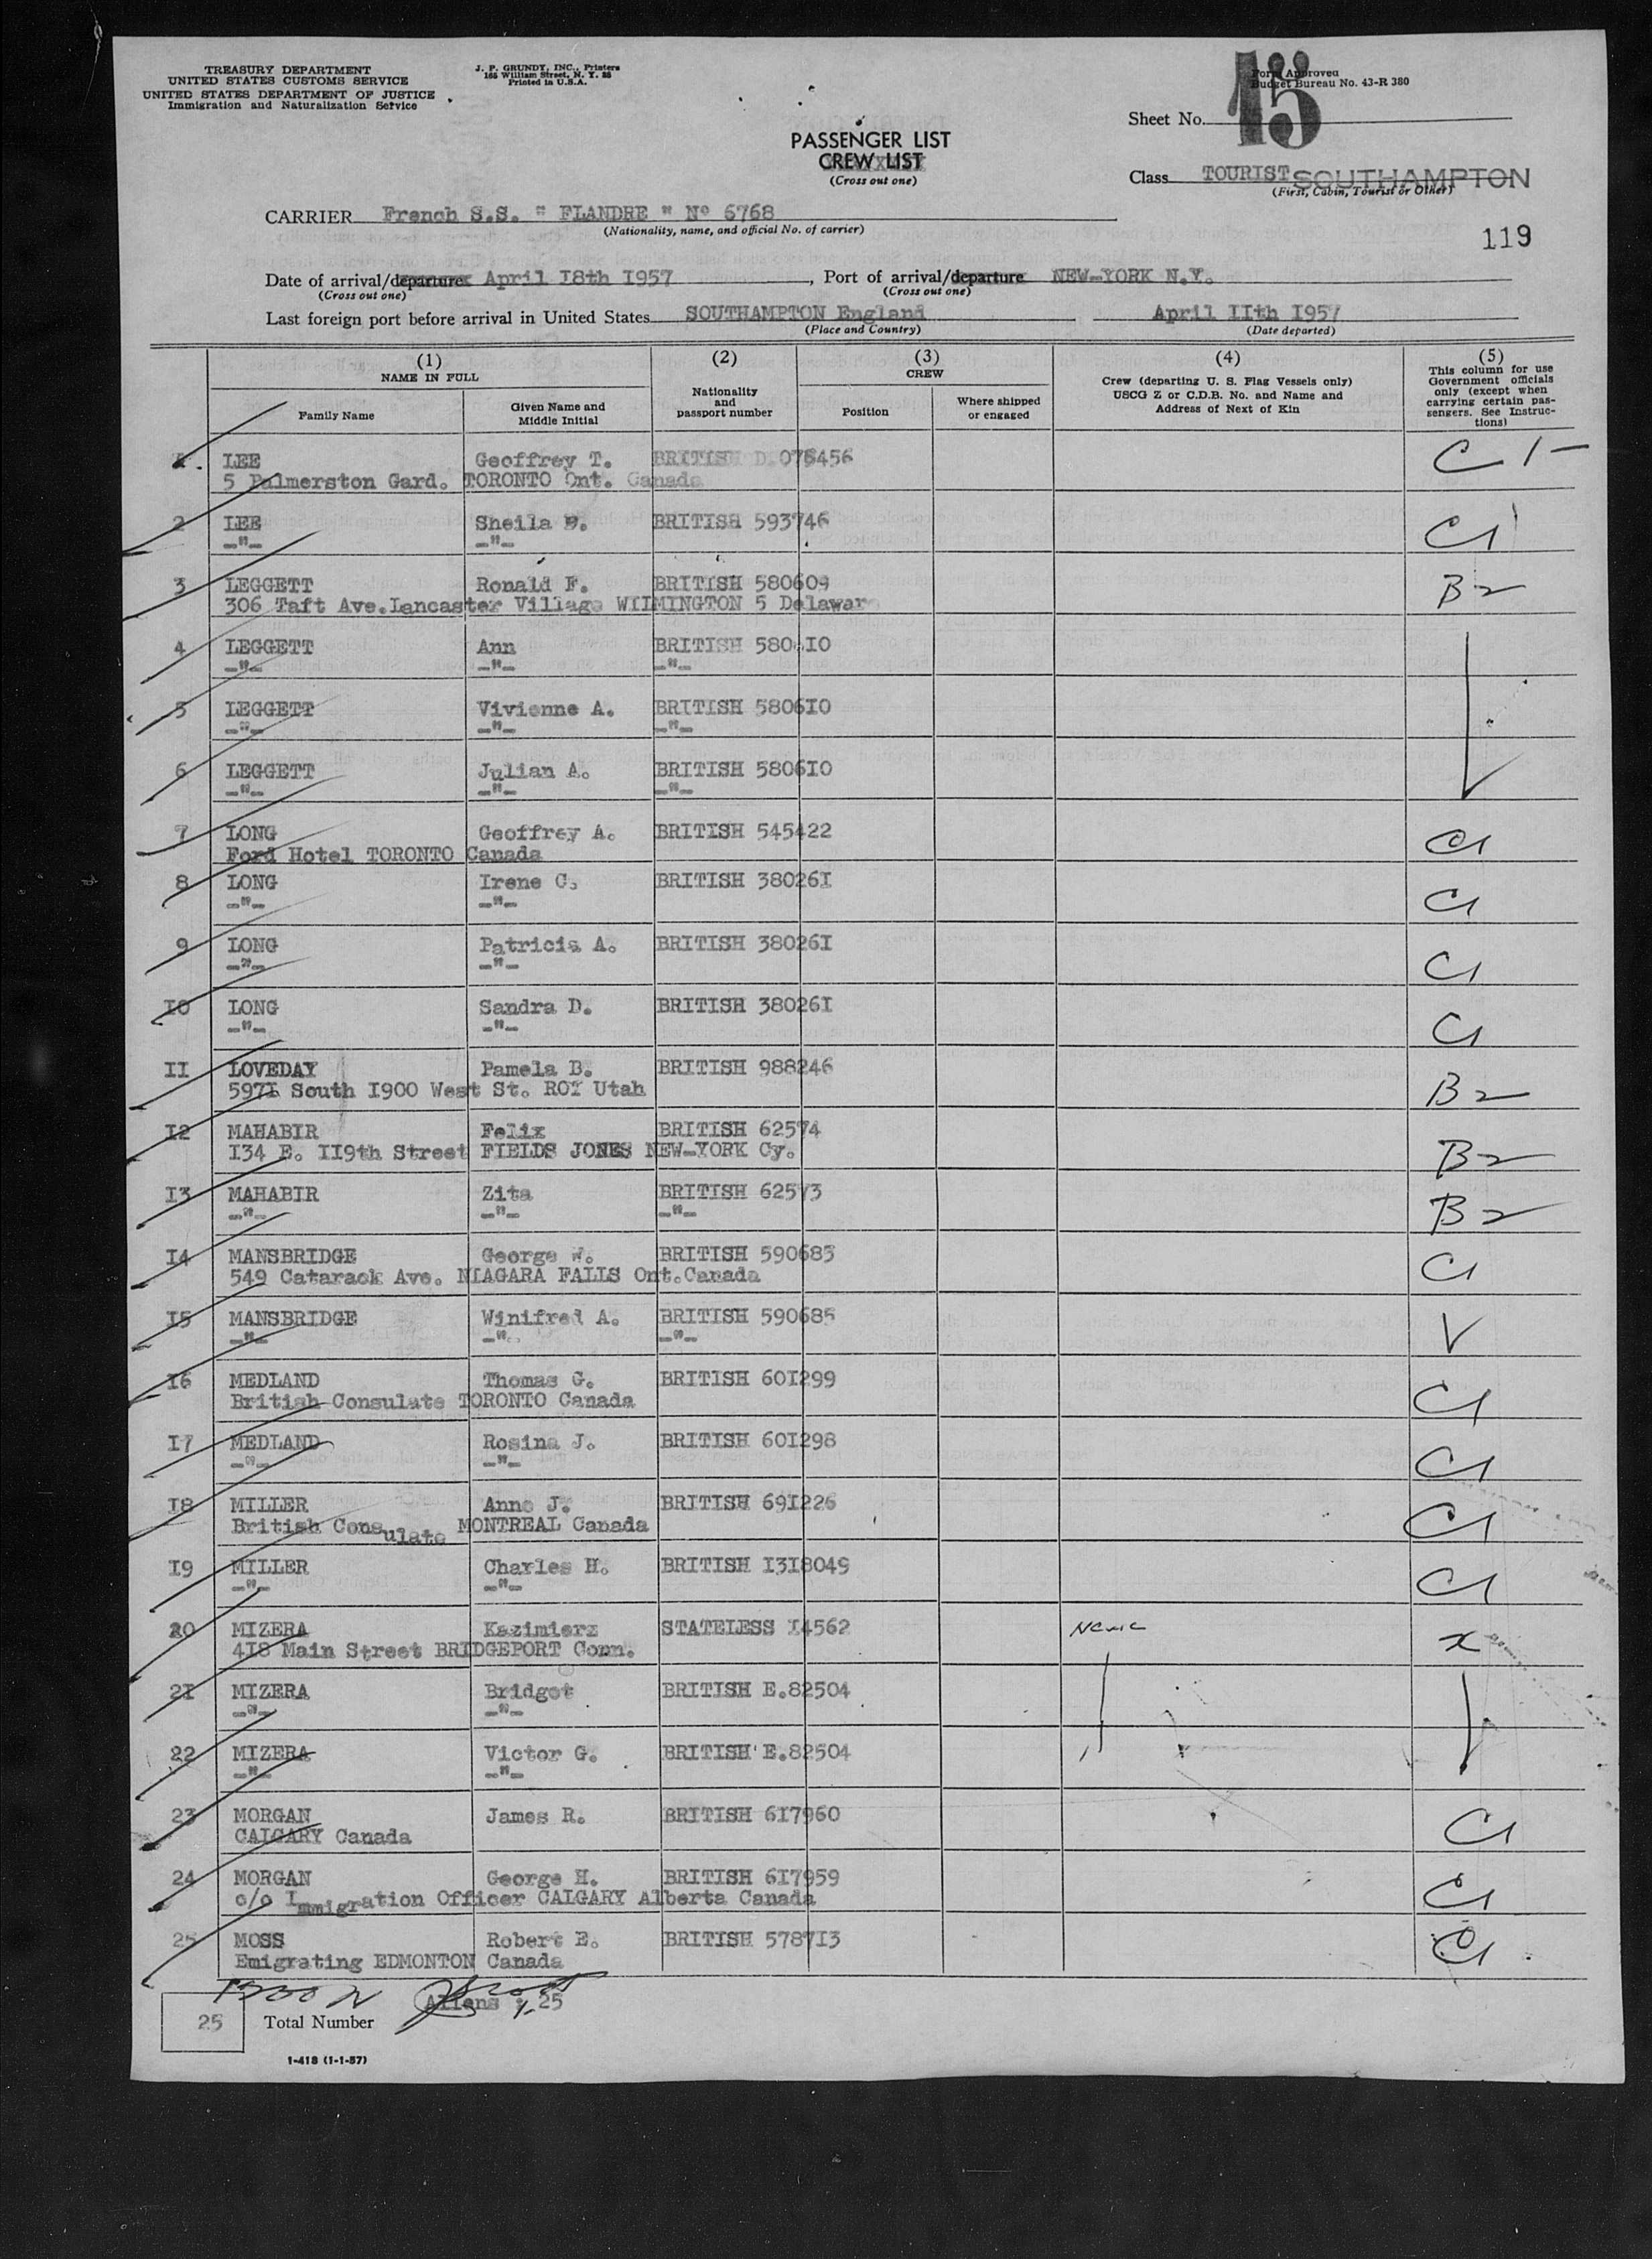 TREASURY DEPARTMENT
UNITED STATES CUSTOMS SERVICE
UNITED STATES DEPARTMENT OF JUSTICE
Immigration and Naturalization Service
J. P. GRUNDY, INC., Printers
165 William Street, N. Y. 38
Printed in U.S.A.
Form Approved
Budget Bureau No. 43-R 380
Sheet No. 15
PASSENGER LIST
CREW LIST
(Cross out one)
Class TOURIST SOUTHAMPTON
(First, Cabin, Tourist or Other)
CARRIER French S.S. " FLANDRE " Nº 6768
(Nationality, name, and official No. of carrier)
119
Date of arrival/departure April I8th I957, Port of arrival/departure NEW-YORK N.Y.
(Cross out one) (Cross out one)
Last foreign port before arrival in United States SOUTHAMPTON England April IIth I957
(Place and Country) (Date departed)
(1) NAME IN FULL
Family Name
Given Name and Middle Initial
(2) Nationality and passport number
(3) CREW
Position
Where shipped or engaged
(4) Crew (departing U. S. Flag Vessels only) USCG Z or C.D.B. No. and Name and Address of Next of Kin
(5) This column for use Government officials only (except when carrying certain passengers. See Instructions)
LEE Geoffrey T. BRITISH D 078456 C 1 -
5 Palmerston Gard. TORONTO Ont. Canada
2 LEE Sheila BRITISH 593746 C1
-"- -"-
3 LEGGETT Ronald F. BRITISH 580609 B2
306 Taft Ave.Lancaster Village WILMINGTON 5 Delawar
4 LEGGETT Ann BRITISH 580610
-"- -"- -"-
5 LEGGETT Vivienne A. BRITISH 5806I0
-"- -"- -"-
6 LEGGETT Julian A. BRITISH 5806I0
-"- -"- -"-
7 LONG Geoffrey A. BRITISH 545422 C1
Ford Hotel TORONTO Canada
8 LONG Irene C. BRITISH 38026I C1
-"- -"-
9 LONG Patricia A. BRITISH 38026I C1
-"- -"-
I0 LONG Sandra D. BRITISH 38026I C1
-"- -"-
II LOVEDAY Pamela B. BRITISH 988246 B2
597I South I900 West St. ROY Utah
I2 MAHABIR Felix BRITISH 62574 B2
I34 E. II9th Street FIELDS JONES NEW-YORK Cy.
I3 MAHABIR Zita BRITISH 62573 B2
-"- -"- -"-
I4 MANSBRIDGE George W. BRITISH 590685 C1
549 Catarack Ave. NIAGARA FALLS Ont.Canada
I5 MANSBRIDGE Winifred A. BRITISH 590685
-"- -"- -"-
I6 MEDLAND Thomas G. BRITISH 60I299 C1
British Consulate TORONTO Canada
I7 MEDLAND Rosina J. BRITISH 60I298 C1
-"- -"-
I8 MILLER Anne J. BRITISH 69I226 C1
British Consulate MONTREAL Canada
I9 MILLER Charles H. BRITISH I3I8049 C1
-"- -"-
20 MIZERA Kazimierz STATELESS I4562 x
4I8 Main Street BRIDGEPORT Conn.
2I MIZERA Bridget BRITISH E.82504
-"- -"-
22 MIZERA Victor G. BRITISH E.82504
-"- -"-
23 MORGAN James R. BRITISH 6I7960 C1
CALGARY Canada
24 MORGAN George H. BRITISH 6I7959 C1
c/o Immigration Officer CALGARY Alberta Canada
25 MOSS Robert E. BRITISH 5787I3 C1
Emigrating EDMONTON Canada
Aliens : 25
25 Total Number
1-418 (1-1-57)